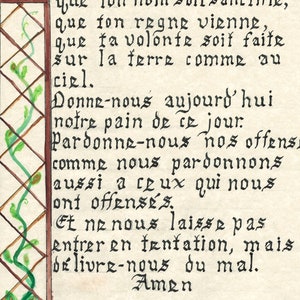 que ton nom soit sanctifié,
que ton regne vienne,
que ta volonte soit faite
sur la terre comme au
ciel.
Donne-nous aujourd'hui
notre pain de ce jour.
Pardonne-nous nos offense
comme nous pardonnons
aussi a ceux qui nous
ont offensés.
Et ne nous laisse pas
entrer en tentation, mais
délivre-nous du mal.
Amen